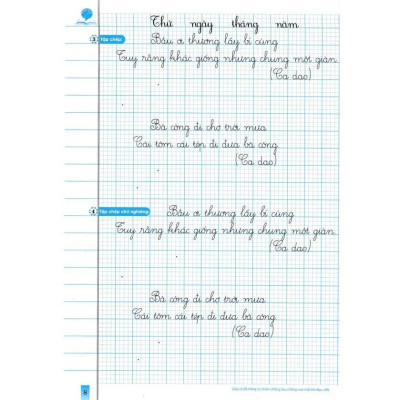 Thứ ngày tháng năm
3 Tập chép
Bầu ơi thương lấy bí cùng
Tuy rằng khác giống nhưng chung một giàn.
(Ca dao)
Bà còng đi chợ trời mưa
Cái tôm cái tép đi đưa bà còng.
(Ca dao)
4 Tập chép chữ nghiêng
Bầu ơi thương lấy bí cùng
Tuy rằng khác giống nhưng chung một giàn.
(Ca dao)
Bà còng đi chợ trời mưa
Cái tôm cái tép đi đưa bà còng.
(Ca dao)
8